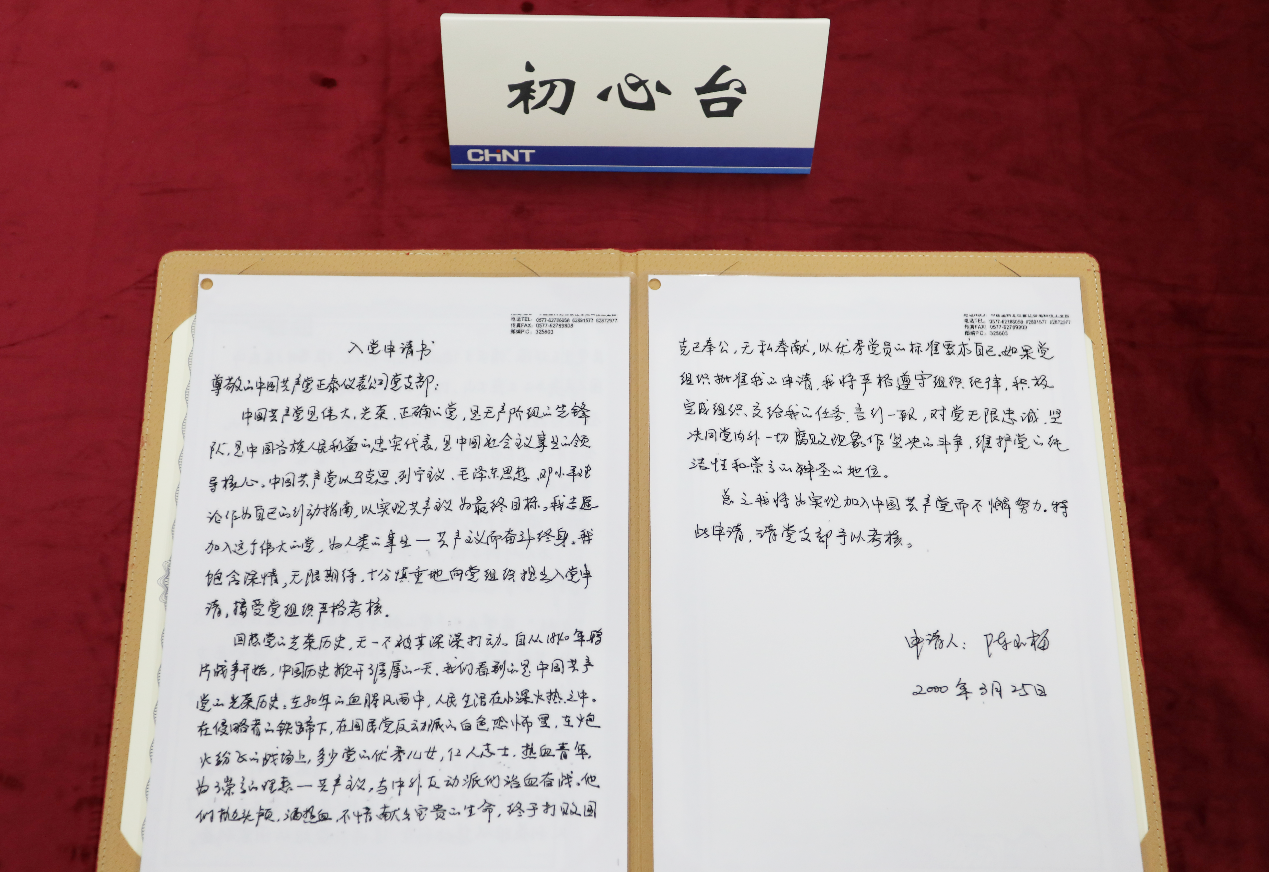 初心台
CHNT
电话TEL: 0577-62789056 62891577 62872977
传真FAX: 0577-62789909
邮编P.C: 325603
入党申请书
尊敬的中国共产党正泰仪表公司党支部:
中国共产党是伟大、光荣、正确的党,是无产阶级的先锋
队,是中国各族人民利益的忠实代表,是中国社会主义事业的领
导核心。中国共产党以马克思、列宁主义、毛泽东思想、邓小平理
论作为自己的行动指南,以实现共产主义为最终目标。我志愿
加入这个伟大的党,为人类的事业一共产主义而奋斗终身。我
饱含深情,无限期待,十分慎重地向党组织提出入党申
请,接受党组织严格考核。
回顾党的光荣历史,无一不被其深深打动。自从1840年鸦
片战争开始,中国历史掀开了屈辱的一天。我们看到的是中国共产
党的光荣历史。在20年的血腥风雨中,人民生活在水深火热之中。
在侵略者的铁蹄下,在国民党反动派的白色恐怖里,在炮
火纷飞的战场上,多少党的优秀儿女,仁人志士,热血青年,
为了崇高的理想一共产主义,与中外反动派们浴血奋战。他
们抛头颅,洒热血,不惜献出宝贵的生命,终于打败国
电话TEL: 0577-62789056 62891577 62872977
传真FAX: 0577-62789909
邮编P.C: 325603
克己奉公,无私奉献,以优秀党员的标准要求自己。如果党
组织批准我的申请,我将严格遵守组织纪律,积极
完成组织交给我的任务,言行一致,对党无限忠诚,坚
决同党内外一切腐败现象作坚决的斗争,维护党的纯
洁性和崇高的神圣的地位。
总之我将为实现加入中国共产党而不懈努力。特
此申请,请党支部予以考核。
申请人:陈
2000年3月25日